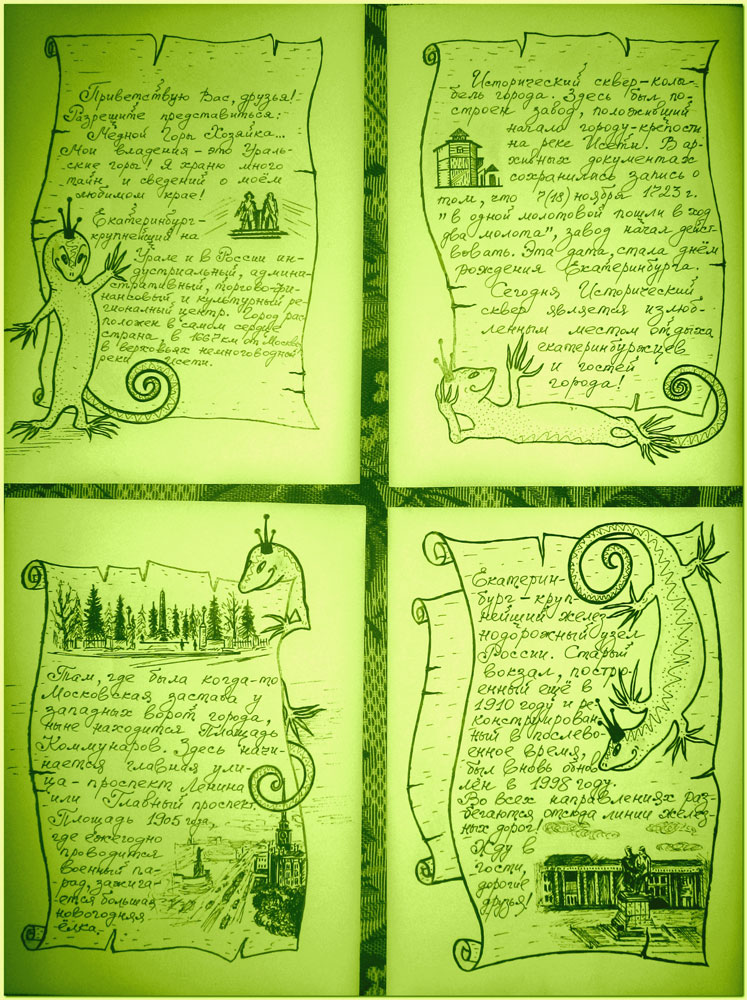 Приветствую Вас, друзья!
Разрешите представиться:
Медной Горы Хозяйка...
Мои владения - это Ураль-
ские горы! Я храню много
тайн и сведений о моём
любимом крае!
Екатеринбург -
крупнейший на
Урале и в России ин-
дустриальный, админи-
стративный, торгово-фи-
нансовый и культурный ре-
гиональный центр. Город рас
положен в самом сердце
страны в 1667 км от Москвы
в верховьях немноговодной
реки Исети.
Исторический сквер-колы-
бель города. Здесь был по-
строен завод, положивший
начало городу-крепости
на реке Исети. В ар-
хивных документах
сохранилась запись о
том, что 7(18) ноября 1723 г.
"в одной молотовой пошли в ход
два молота", завод начал дейст-
вовать. Эта дата, стала днём
рождения Екатеринбурга.
Сегодня Исторический
сквер является излюб-
ленным местом отдыха
екатеринбуржцев
и гостей
города!
Там, где была когда-то
Московская застава у
западных ворот города,
ныне находится Площадь
Коммунаров. Здесь начи-
нается главная ули-
ца - проспект Ленина
или Главный проспект.
Площадь 1905 года,
где ежегодно
проводится
военный па-
рад, зажига-
ется большая
новогодняя
ёлка.
Екатерин-
бург - круп
нейший желез
нодорожный узел
России. Старый
вокзал, постро-
енный ещё в
1910 году и ре
конструирован
ный в послево-
енное время,
был вновь обнов
лён в 1998 году.
Во всех направлениях раз-
бегаются отсюда линии желез-
ных дорог!
Жду в
гости,
дорогие
друзья!